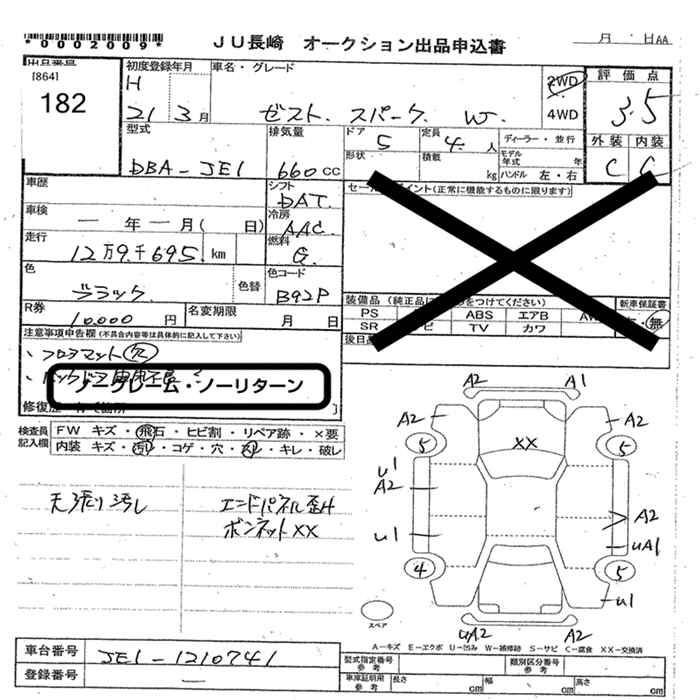 *0002009*
JU長崎 オークション出品申込書
月 日AA
出品番号
[864]
182
初度登録年月
H
21 3月
車名・グレード
ゼスト. スパーク. W.
2WD
4WD
評価点
3.5
外装 内装
C C
型式
DBA-JE1
排気量
660cc
ドア
5
定員
4.人
形状
積載
kg
ディーラー・並行
モデル年式 年
ハンドル 左・右
車歴
シフト
DAT.
セールスポイント(正常に機能するものに限ります)
車検
― 年 ― 月( 日)
冷房
AAC.
走行
12万9千695. km
燃料
G.
色
ブラック.
色替
色コード
B92P
装備品(純正品に○をつけてください)
新車保証書
PS ABS エアB AW
SR ナビ TV カワ
・無
R券
10,000 円
名変期限
月 日
後日
注意事項申告欄(不具合内容等は具体的に記入して下さい)
、フロアマット欠
、バックドア
ノークレーム・ノーリターン
修復歴 有(箇所 )
検査員記入欄
FW キズ・飛石・ヒビ割・リペア跡・×要
内装 キズ・汚れ・コゲ・穴・スレ・キレ・破レ
天張り汚れ
エンドパネル歪み
ボンネットXX
A2 A1
A2 A2
5 XX 5
U1
A2
A2
U1
UA1
4 5
U1
UA2 A2
スペア
A-キズ E-エクボ U-凹み W-補修跡 S-サビ C-腐食 XX-交換済
車台番号
JE1-1210741
登録番号
型式指定番号 参考
類別区分番号 参考
車庫証明用 参考
長さ cm
幅 cm
高さ cm